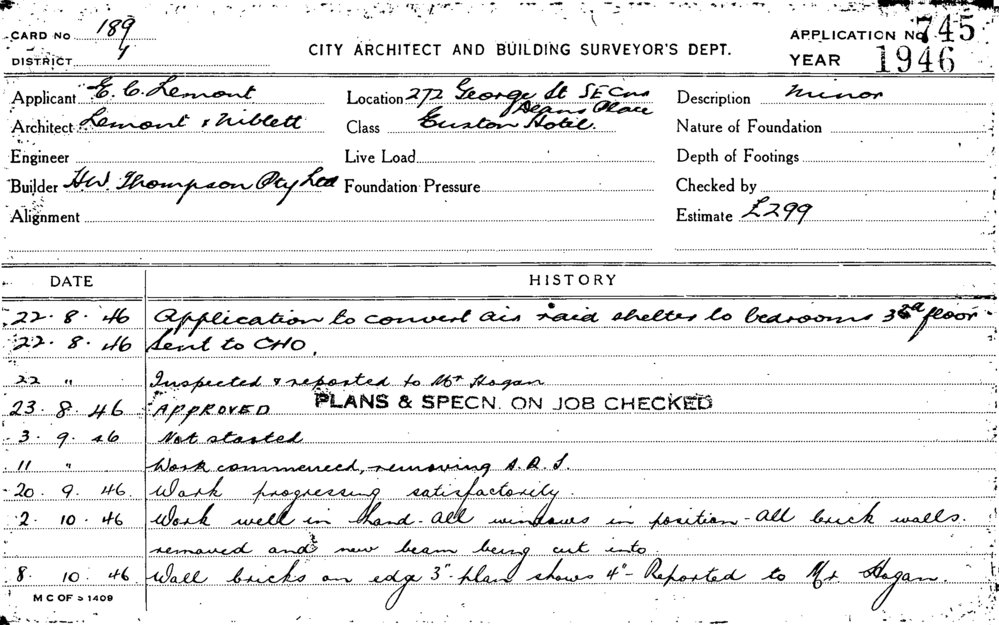 CARD NO 189
DISTRICT 4
CITY ARCHITECT AND BUILDING SURVEYOR'S DEPT.
APPLICATION NO 745
YEAR 1946
Applicant E. C. Lemont
Location 272 George St SE Cnr
Deans Place
Description minor
Architect Lemont & Niblett
Class Euston Hotel.
Nature of Foundation
Engineer
Live Load
Depth of Footings
Builder HW. Thompson Pty Ltd
Foundation Pressure
Checked by
Alignment
Estimate £299
DATE HISTORY
22. 8. 46 Application to convert air raid shelter to bedrooms 3rd floor
22. 8. 46 Sent to CHO.
22 " Inspected & reported to Mr Hogan
23. 8. 46 APPROVED PLANS & SPECN. ON JOB CHECKED
3. 9. 46 Not started
11 " Work commenced, removing A.R.S.
20. 9. 46. Work progressing satisfactorily.
2. 10. 46 Work well in hand - All windows in position - All brick walls.
removed and new beam being cut into.
8. 10. 46 Wall bricks on edge 3" - plan shows 4" - Reported to Mr Hogan.
M C OF S 1409